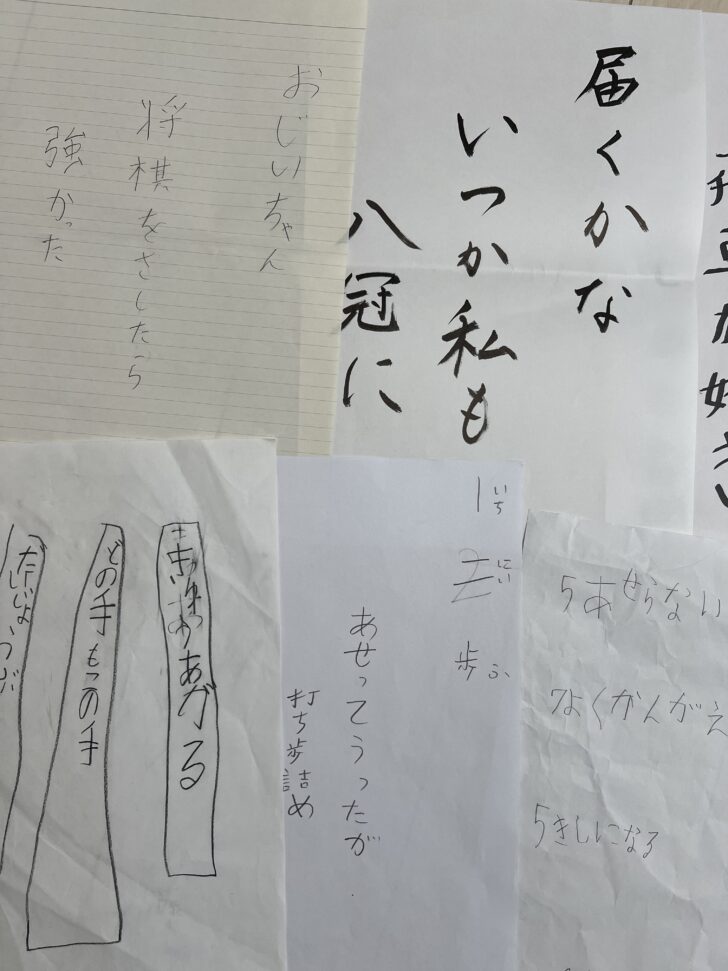 おじいちゃん
将棋をさしたら
強かった
届くかな
いつか私も
八冠に
あがる
どの手もこの手
1いち 2にい 歩ふ
あせってうったが
打ち歩詰め
5あせらない
7よくかんがえ
5きしになる